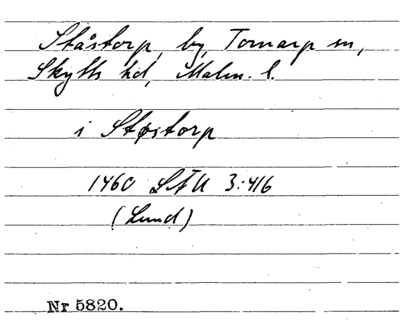 Ståstorp, by, Tomarp sn,
Skytts hd, Malm. l.
i Støstorp
1460 LÄU 3:416
(Lund)
Nr 5820.